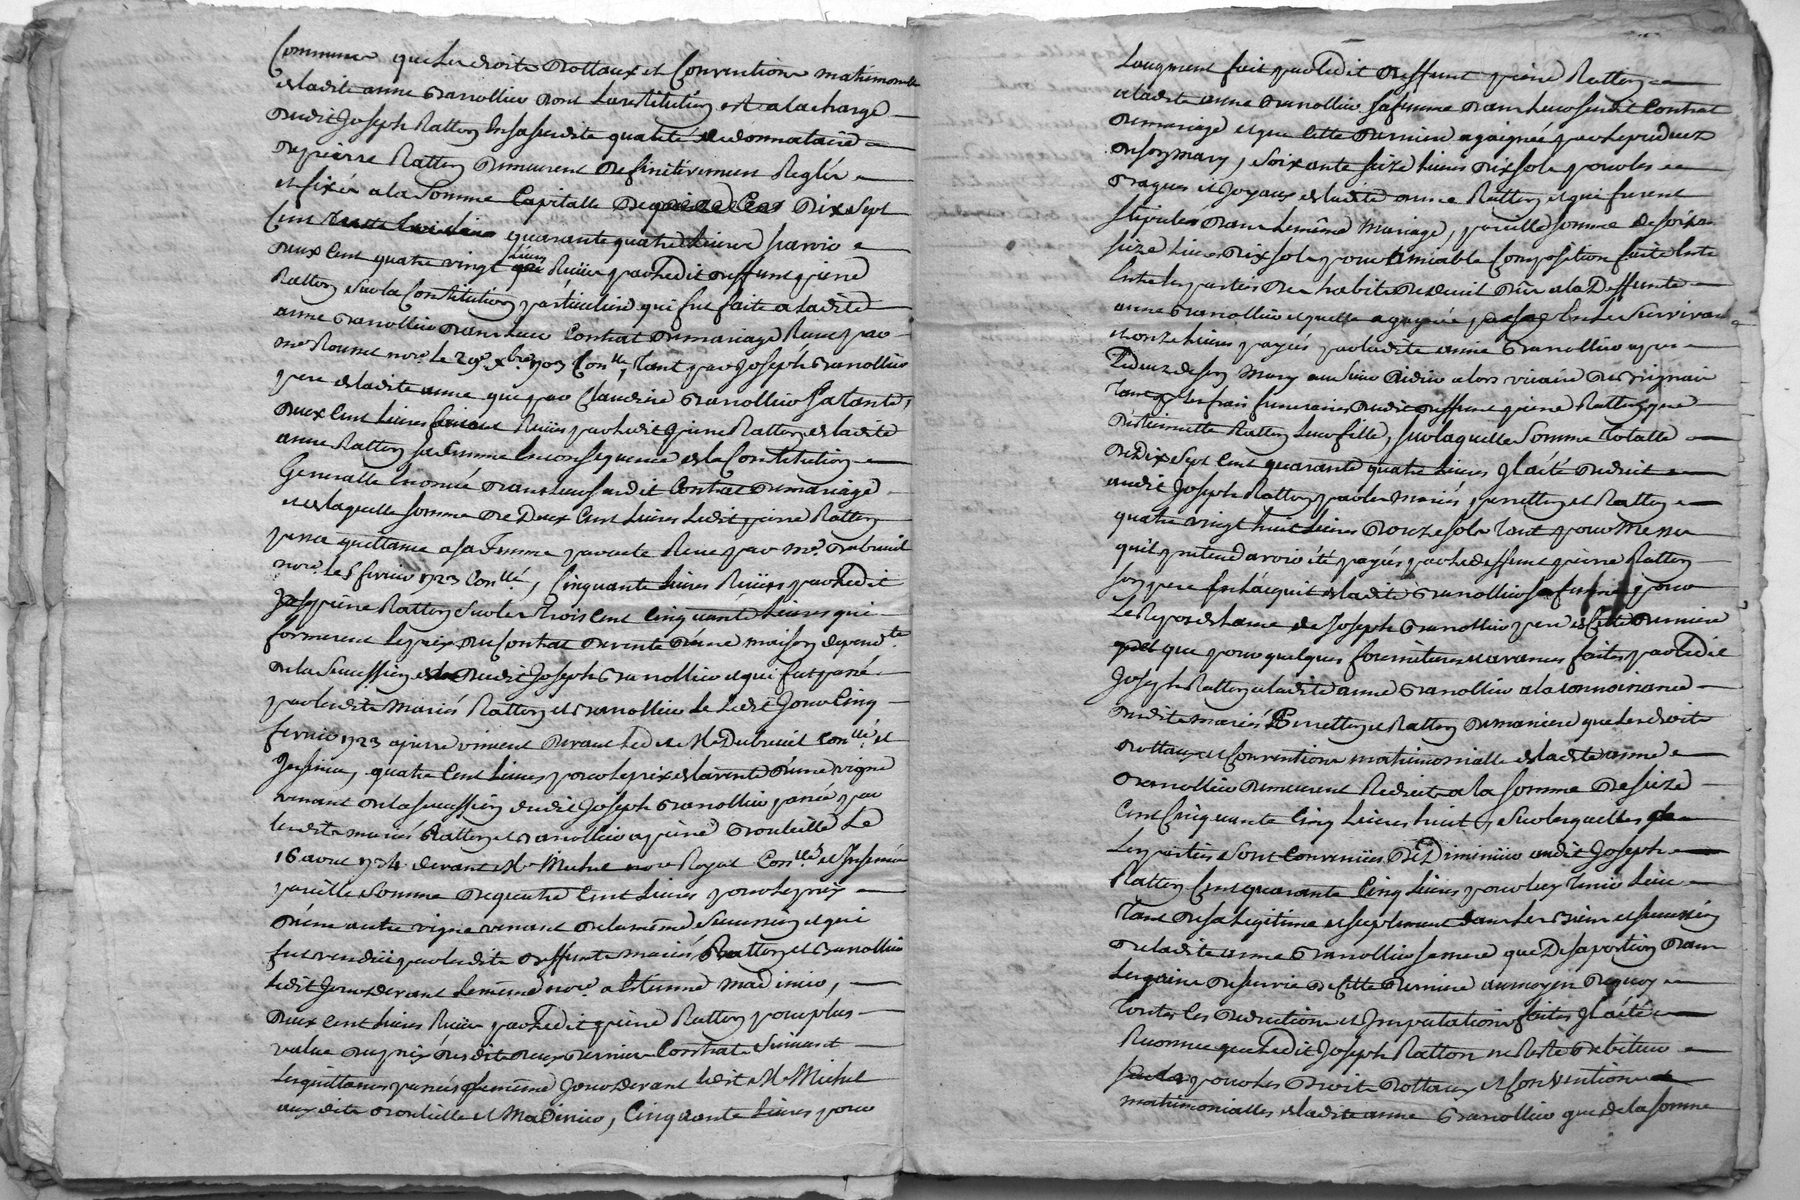 Commune que les droits Dottaux et Conventions matrimonialle
de ladite anne Granollier dont la restitution est a la charge
dudit Joseph Ratton En sa susdite qualité de donnataire
de pierre Ratton Demeurent Definitivement Reglée
et fixée a la Somme Capitalle de Dix Sept
Cent quarante quatre Livres Savoir
deux Cent quatre vingt Livres Reüie par ledit deffunt pierre
Ratton Sur la Constitution particuliere qui fut faite a ladite
anne Granollier dans Leur Contrat de mariage Receu par
me nore le 29e xbre 1703 Conllé, tant par Joseph Granollier
pere de ladite anne que par Claudine Granollier Sa tante,
deux Cent Livres Reüies par ledit pierre Ratton de ladite
anne Ratton sa femme En consequence de la Constitution
Generalle Enoncée dans Leur susdit Contrat de mariage
et de laquelle somme de Deux Cent Livres Ledit pierre Ratton
passa quittance a sa Femme par acte Receu par Me Dubreuil
nore le 5 fevrier 1723 Conllé, Cinquante Livres Reüies par ledit
pierre Ratton Sur les trois Cent Cinquante Livres qui
formerent le prix du Contrat de vente d'une maison dependte
de la Succession dudit Joseph Granollier et qui fut passé
par lesdits Mariés Ratton et Granollier le dit Jour Cinq
fevrier 1723 a pierre viniant devant led. Me Dubreuil Conllé et
Insinué, quatre Cent Livres pour le prix de la vente d'une vigne
venant de la succession dudit Joseph Granollier passée par
lesdits mariés Ratton et Granollier a pierre Grouleille Le
16 aout 1734 devant Me Michel nore Royal Conllé et Insinué
pareille Somme de quatre Cent Livres pour le prix
d'une autre vigne venant de la même Succession et qui
fut vendüe par lesdits deffunts mariés Ratton et Granollier
ledit Jour devant le même nore a Etienne Madinier,
deux Cent Livres Reüie par ledit pierre Ratton pour plus
value du prix desdits deux dernier Contrats Suivant
les quittances passées le même Jour devant ledit Me Michel
auxdits Grouleille et Madinier, Cinquante Livres pour
Laugment fait par ledit deffunt pierre Ratton
a ladite anne Granollier sa femme dans Leur susdit Contrat
de mariage et que Cette derniere a gaignée par le predecez
de son mary, Soixante seize Livres dix sols pour les
Bagues et Joyaux de ladite anne Ratton et qui furent
stipulés dans le même Mariage, pareille somme de soixante
seize Livres dix sols pour amiable Composition faite Entre
Entre les parties des habits de deuil dûs a la Deffunte
anne Granollier et quelle a gagnée par Survivance
et onze Livres payés par ladite anne Granollier apres
le deces de son Mary au Sieur Didier alors vicaire de
tant p. les frais funeraires dudit deffunt pierre Ratton que
d'Estiennette Ratton Leur fille, sur laquelle Somme totalle
de Dix Sept Cent quarante quatre Livres Il a été deduit
audit Joseph Ratton par les Mariés perretton et Ratton
quatre vingt huit Livres Douze sols tant pour Messes
qu'il pretend avoir été payés par le deffunt pierre Ratton
son pere En l'acquit de ladite Granollier sa femme pour
Le Repos de l'ame de Joseph Granollier pere de Cette derniere
que pour quelques fournitures et avances faites par ledit
Joseph Ratton a ladite anne Granollier a la connoissance
desdits mariés Perretton et Ratton De maniere que les droits
Dottaux et Conventions matrimonialle de ladite anne
Granollier Demeurent Reduits a la somme de Seize
Cent Cinquante Cinq Livres huit s. Sur lesquelles
Les parties Sont Convenües de Diminuer audit Joseph
Ratton Cent quarante Cinq Livres pour luy tenir Lieu
tant de sa Legitime et suplement dans les Biens et succession
de ladite anne Granollier sa mere que De sa portion dans
les gains de survie de Cette derniere au moyen dequoy
toutes Les deductions et Imputations faites Il a été
Reconnue que ledit Joseph Ratton ne Reste debiteur
pour les Droits Dottaux et Conventions
matrimonialles de ladite anne Granollier que de la somme